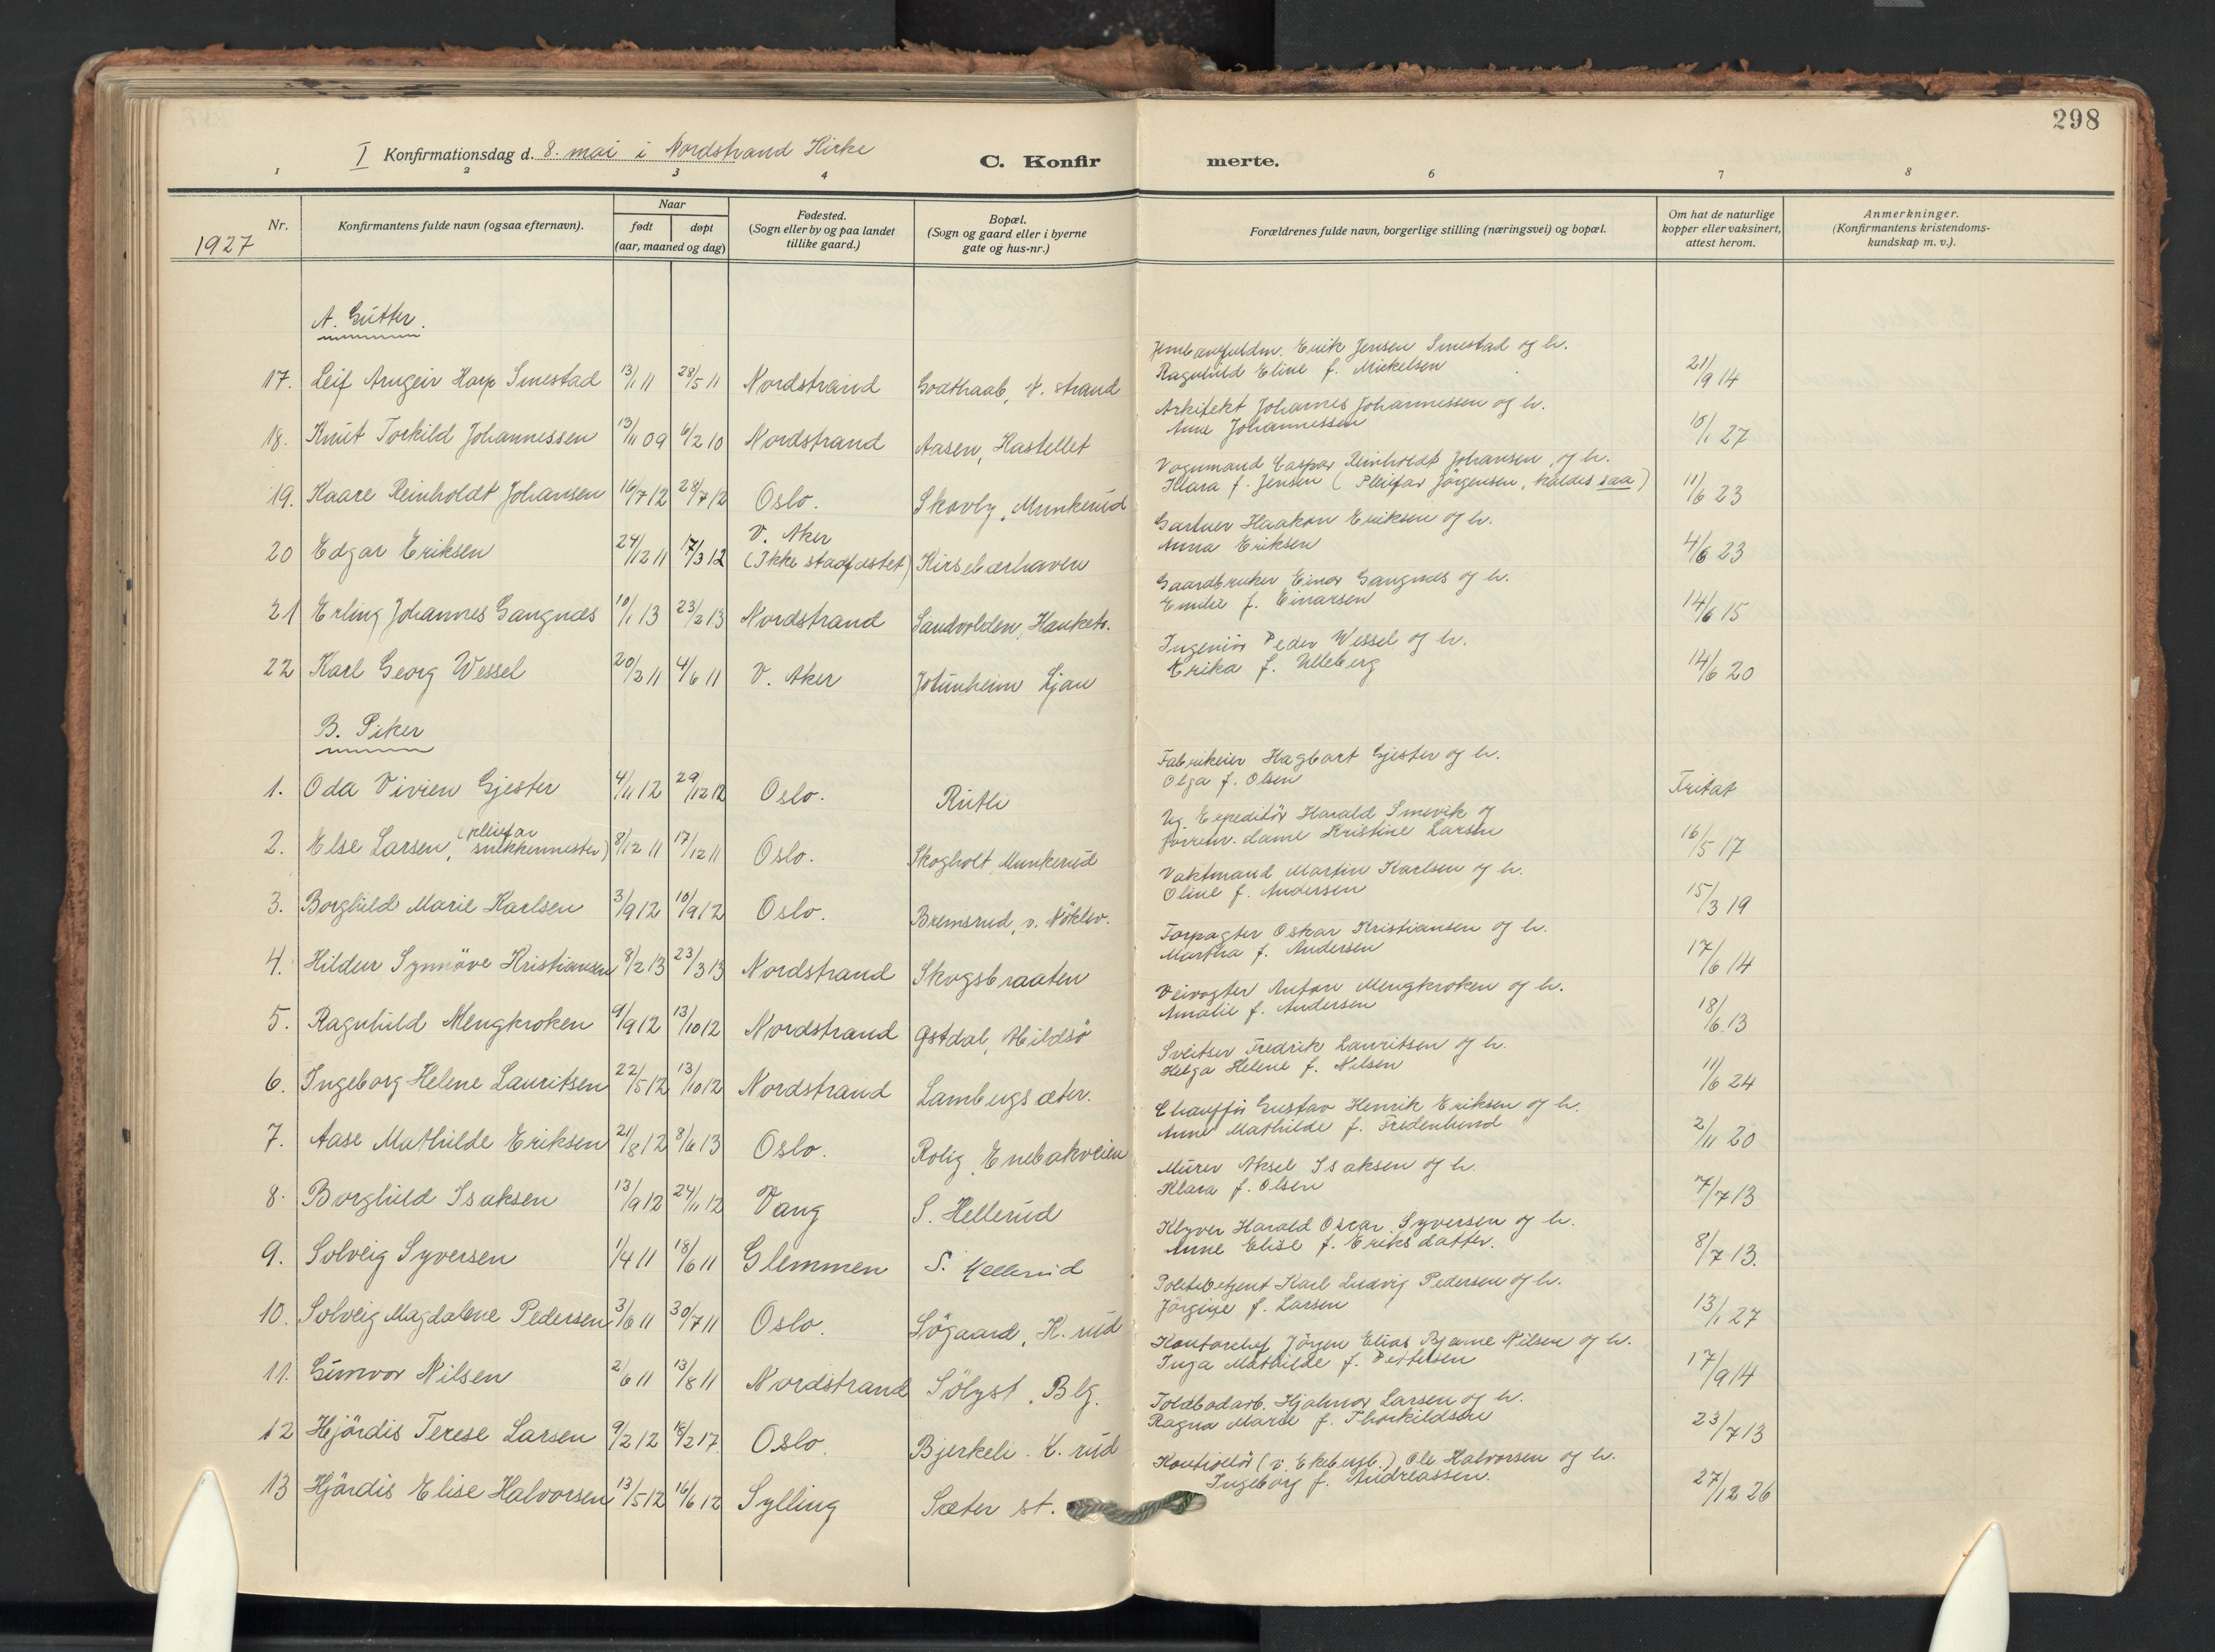 298
I Konfirmationsdag d. 8. mai i Nordstrand Kirke
C. Konfir merte.
1 2 3 4 6 7 8
1927
Nr.
Konfirmantens fulde navn (ogsaa efternavn).
Naar
født døpt
(aar, maaned og dag)
Fødested.
(Sogn eller by og paa landet
tillike gaard.)
Bopæl.
(Sogn og gaard eller i byerne
gate og hus-nr.)
Forældrenes fulde navn, borgerlige stilling (næringsvei) og bopæl.
Om hat de naturlige
kopper eller vaksinert,
attest herom.
Anmerkninger.
(Konfirmantens kristendoms-
kundskap m. v.).
A. Gutter.
Erik Jensen Smestad og h.
17. Leif Arngeir Harp Smestad 13/1 11 28/5 11 Nordstrand Godthaab, N. strand Ragnhild Eline f. Mickelsen 21/9 14
Arkitekt Johannes Johannessen og h.
18. Knut Torkild Johannessen 13/11 09 6/2 10 Nordstrand Aasen, Kastellet Anna Johannessen 10/1 27
Vognmand Caspar Reinholdt Johansen og h.
19. Kaare Reinholdt Johansen 16/7 12 28/7 12 Oslo. Skovly, Munkerud Klara f. Jensen (Pleiefar Jörgensen, kaldes saa) 11/6 23
Gartner Haakon Eriksen og h.
20 Edgar Eriksen 24/12 11 17/3 12 V. Aker (Ikke stadfestet) Kirsebærhaven Anna Eriksen 4/6 23
Gaardbruker Einar Gangnæs og h.
21 Erling Johannes Gangnæs 10/1 13 23/2 13 Nordstrand Sandvolden, Hauketo. Emilie f. Einarsen 14/6 15
Ingeniör Peder Wessel og h.
22 Karl Georg Wessel 20/2 11 4/6 11 V. Aker Jotunheim Ljan Erika f. Ulleberg 14/6 20
B. Piker
Fabrikeier Hagbart Gjester og h.
1. Oda Vivien Gjester 4/11 12 29/12 12 Oslo. Rütli Olga f. Olsen Fritat
Ug. Expeditör Harald Smevik og
2. Else Larsen, (pleiefar snekkermester) 8/12 11 17/12 11 Oslo. Skogholt, Munkerud dame Kristine Larsen 16/5 17
Vaktmand Martin Karlsen og h.
3. Borghild Marie Karlsen 3/9 12 10/9 12 Oslo. Bremsrud, v. Nöklev. Oline f. Andersen 15/3 19
Forpagter Oskar Kristiansen og h.
4. Hildur Synnöve Kristiansen 8/2 13 23/3 13 Nordstrand Skogsbraaten Martha f. Andersen 17/6 14
Veivogter Anton Mengkroken og h.
5. Ragnhild Mengkroken 9/9 12 13/10 12 Nordstrand Gstdal, Hildsö Amalie f. Andersen 18/6 13
Sveitser Fredrik Lauritsen og h.
6. Ingeborg Helene Lauritsen 22/5 12 13/10 12 Nordstrand Lambergsæter. Helga Helene f. Nilsen 11/6 24
Chaufför Gustav Henrik Eriksen og h.
7. Aase Mathilde Eriksen 21/8 12 8/6 13 Oslo. Rolig, Enebakveien Anne Mathilde f. Fredenlund 2/11 20
Murer Aksel Isaksen og h.
8. Borghild Isaksen 13/9 12 24/11 12 Vang S. Hellerud Klara f. Olsen 7/7 13
Klyver Harald Oscar Syversen og h.
9. Solveig Syversen 1/4 11 18/6 11 Glemmen S. Hellerud Anne Elise f. Eriksdatter. 8/7 13.
Politibetjent Karl Ludvig Pedersen og h.
10. Solveig Magdalene Pedersen 3/6 11 30/7 11 Oslo. Sögaard, K. rud Jörgine f. Larsen 13/1 27
Kontorchef Jörgen Elias Bjarne Nilsen og h.
11. Gunvor Nilsen 2/6 11 13/8 11 Nordstrand Sölyst, Blg. Inga Mathilde f. Pettersen 17/9 14
Toldbodarb. Hjalmar Larsen og h.
12 Hjördis Terese Larsen 9/2 12 18/2 17. Oslo. Bjerkeli. K. rud Ragna Marie f. Thorkildsen 23/7 13
Kontrollör (v. Ekebergb.) Ole Halvorsen og h.
13 Hjördis Elise Halvorsen 13/5 12 16/6 12 Sylling Sæter st. Ingeborg f. Andreassen. 27/12 26